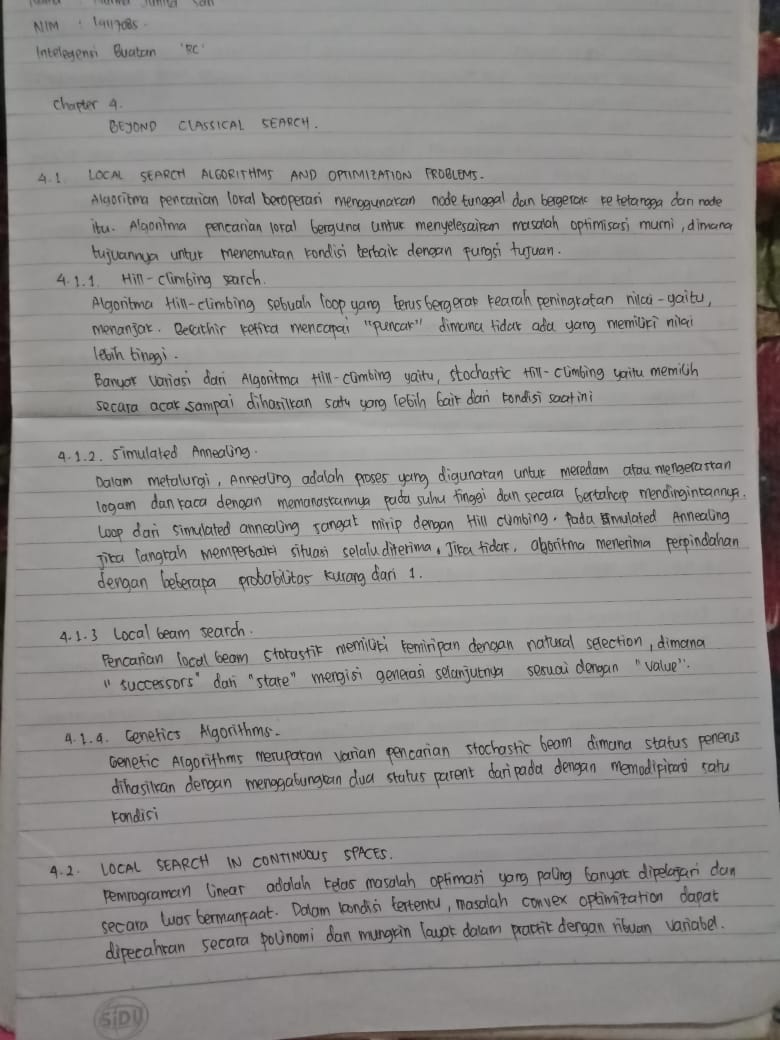 NIM : 19117085
Intelegensi Buatan 'RC'
Chapter 4.
BEYOND CLASSICAL SEARCH.
4.1. LOCAL SEARCH ALGORITHMS AND OPTIMIZATION PROBLEMS.
Algoritma pencarian lokal beroperasi menggunakan node tunggal dan bergerak ke tetangga dari node
itu. Algoritma pencarian lokal berguna untuk menyelesaikan masalah optimisasi murni, dimana
tujuannya untuk menemukan kondisi terbaik dengan fungsi tujuan.
4.1.1. Hill-climbing search.
Algoritma Hill-climbing sebuah loop yang terus bergerak kearah peningkatan nilai - yaitu,
menanjak. Berakhir ketika mencapai "puncak" dimana tidak ada yang memiliki nilai
lebih tinggi.
Banyak variasi dari Algoritma Hill-climbing yaitu, stochastic Hill-climbing yaitu memilih
secara acak sampai dihasilkan satu yang lebih baik dari kondisi saat ini
4.1.2. Simulated Annealing.
Dalam metalurgi, Annealing adalah proses yang digunakan untuk meredam atau mengeraskan
logam dan kaca dengan memanaskannya pada suhu tinggi dan secara bertahap mendinginkannya.
Loop dari simulated annealing sangat mirip dengan Hill climbing. Pada Simulated Annealing
Jika langkah memperbaiki situasi selalu diterima. Jika tidak, algoritma menerima perpindahan
dengan beberapa probabilitas kurang dari 1.
4.1.3 Local beam search.
Pencarian local beam stokastik memiliki kemiripan dengan natural selection, dimana
"successors" dari "state" mengisi generasi selanjutnya sesuai dengan "value".
4.1.4. Genetics Algorithms.
Genetic Algorithms merupakan varian pencarian stochastic beam dimana status penerus
dihasilkan dengan menggabungkan dua status parent daripada dengan memodipikasi satu
kondisi
4.2. LOCAL SEARCH IN CONTINUOUS SPACES.
Pemrograman linear adalah kelas masalah optimasi yang paling banyak dipelajari dan
secara luas bermanfaat. Dalam kondisi tertentu, masalah convex optimization dapat
dipecahkan secara polinomi dan mungkin layak dalam praktik dengan ribuan variabel.
SiDU